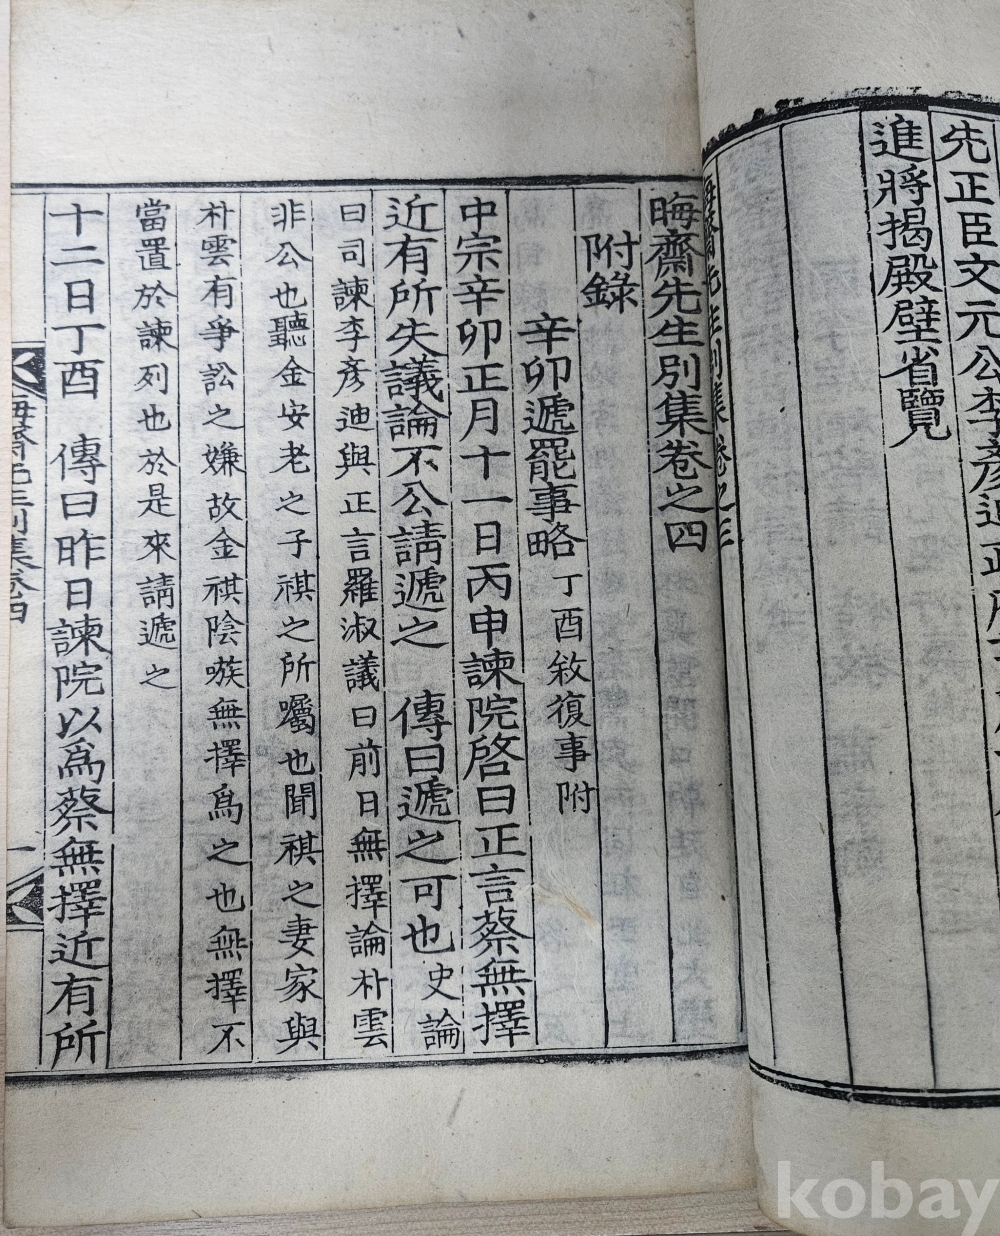 先正臣文元公李彦迪
進將揭殿壁省覽
晦齋先生別集卷之三
晦齋先生別集卷之四
附錄
辛卯遞罷事略 丁酉敘復事附
中宗辛卯正月十一日丙申諫院啓曰正言蔡無擇
近有所失議論不公請遞之 傳曰遞之可也 史論
曰司諫李彥迪與正言羅淑議曰前日無擇論朴雲
非公也聽金安老之子祺之所囑也聞祺之妻家與
朴雲有爭訟之嫌故金祺陰嗾無擇爲之也無擇不
當置於諫列也於是來請遞之
十二日丁酉 傳曰昨日諫院以爲蔡無擇近有所
晦齋先生別集卷四
一
kobay